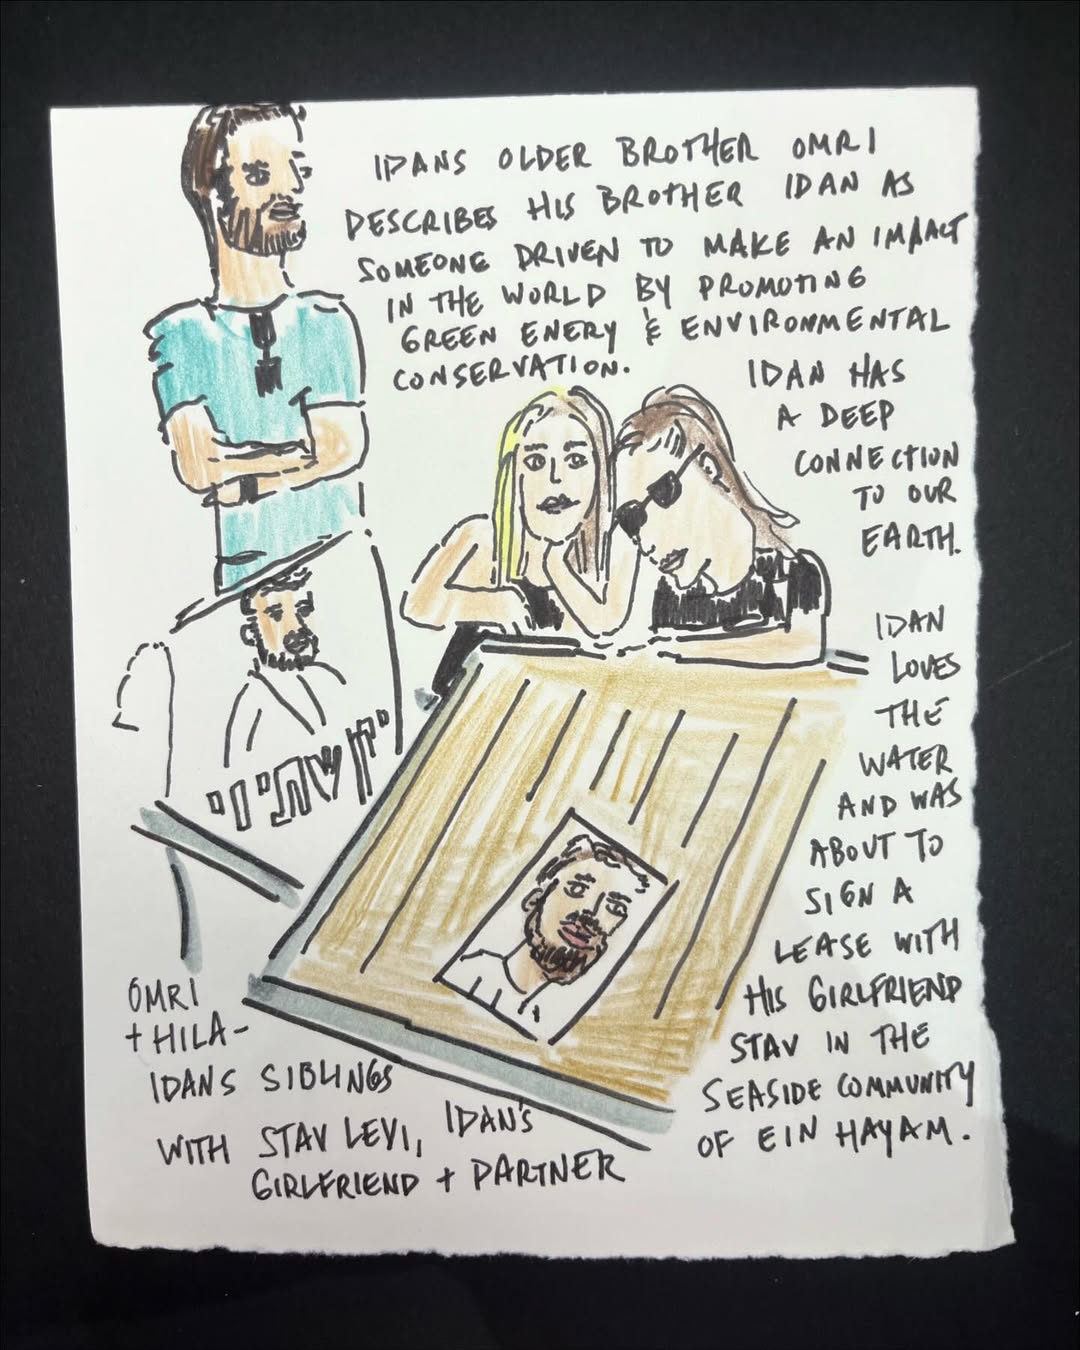 IDANS OLDER BROTHER OMRI
DESCRIBES HIS BROTHER IDAN AS
SOMEONE DRIVEN TO MAKE AN IMPACT
IN THE WORLD BY PROMOTING
GREEN ENERY & ENVIRONMENTAL
CONSERVATION.
IDAN HAS
A DEEP
CONNECTION
TO OUR
EARTH.
IDAN
LOVES
THE
WATER
AND WAS
ABOUT TO
SIGN A
LEASE WITH
HIS GIRLFRIEND
STAV IN THE
SEASIDE COMMUNITY
OF EIN HAYAM.
שתיוי
OMRI
+ HILA -
IDANS SIBLINGS
WITH STAV LEVI, IDAN'S
GIRLFRIEND + PARTNER